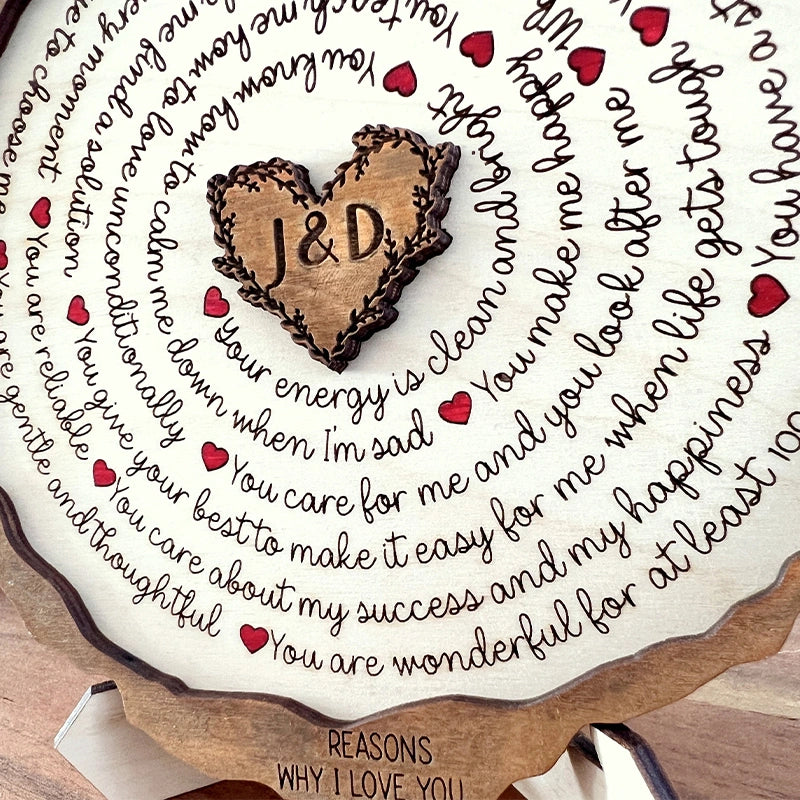 J & D
Your energy is clean and bright
You know how to calm me down when I'm sad
You make me happy
You teach me how to love unconditionally
You care for me and you look after me
Wh
me kind a solution
You give your best to make it easy for me when life gets tough
ery moment
You are reliable
You care about my success and my happiness
You have a st
ue to choose me
You are gentle and thoughtful
You are wonderful for at least 100
REASONS
WHY I LOVE YOU